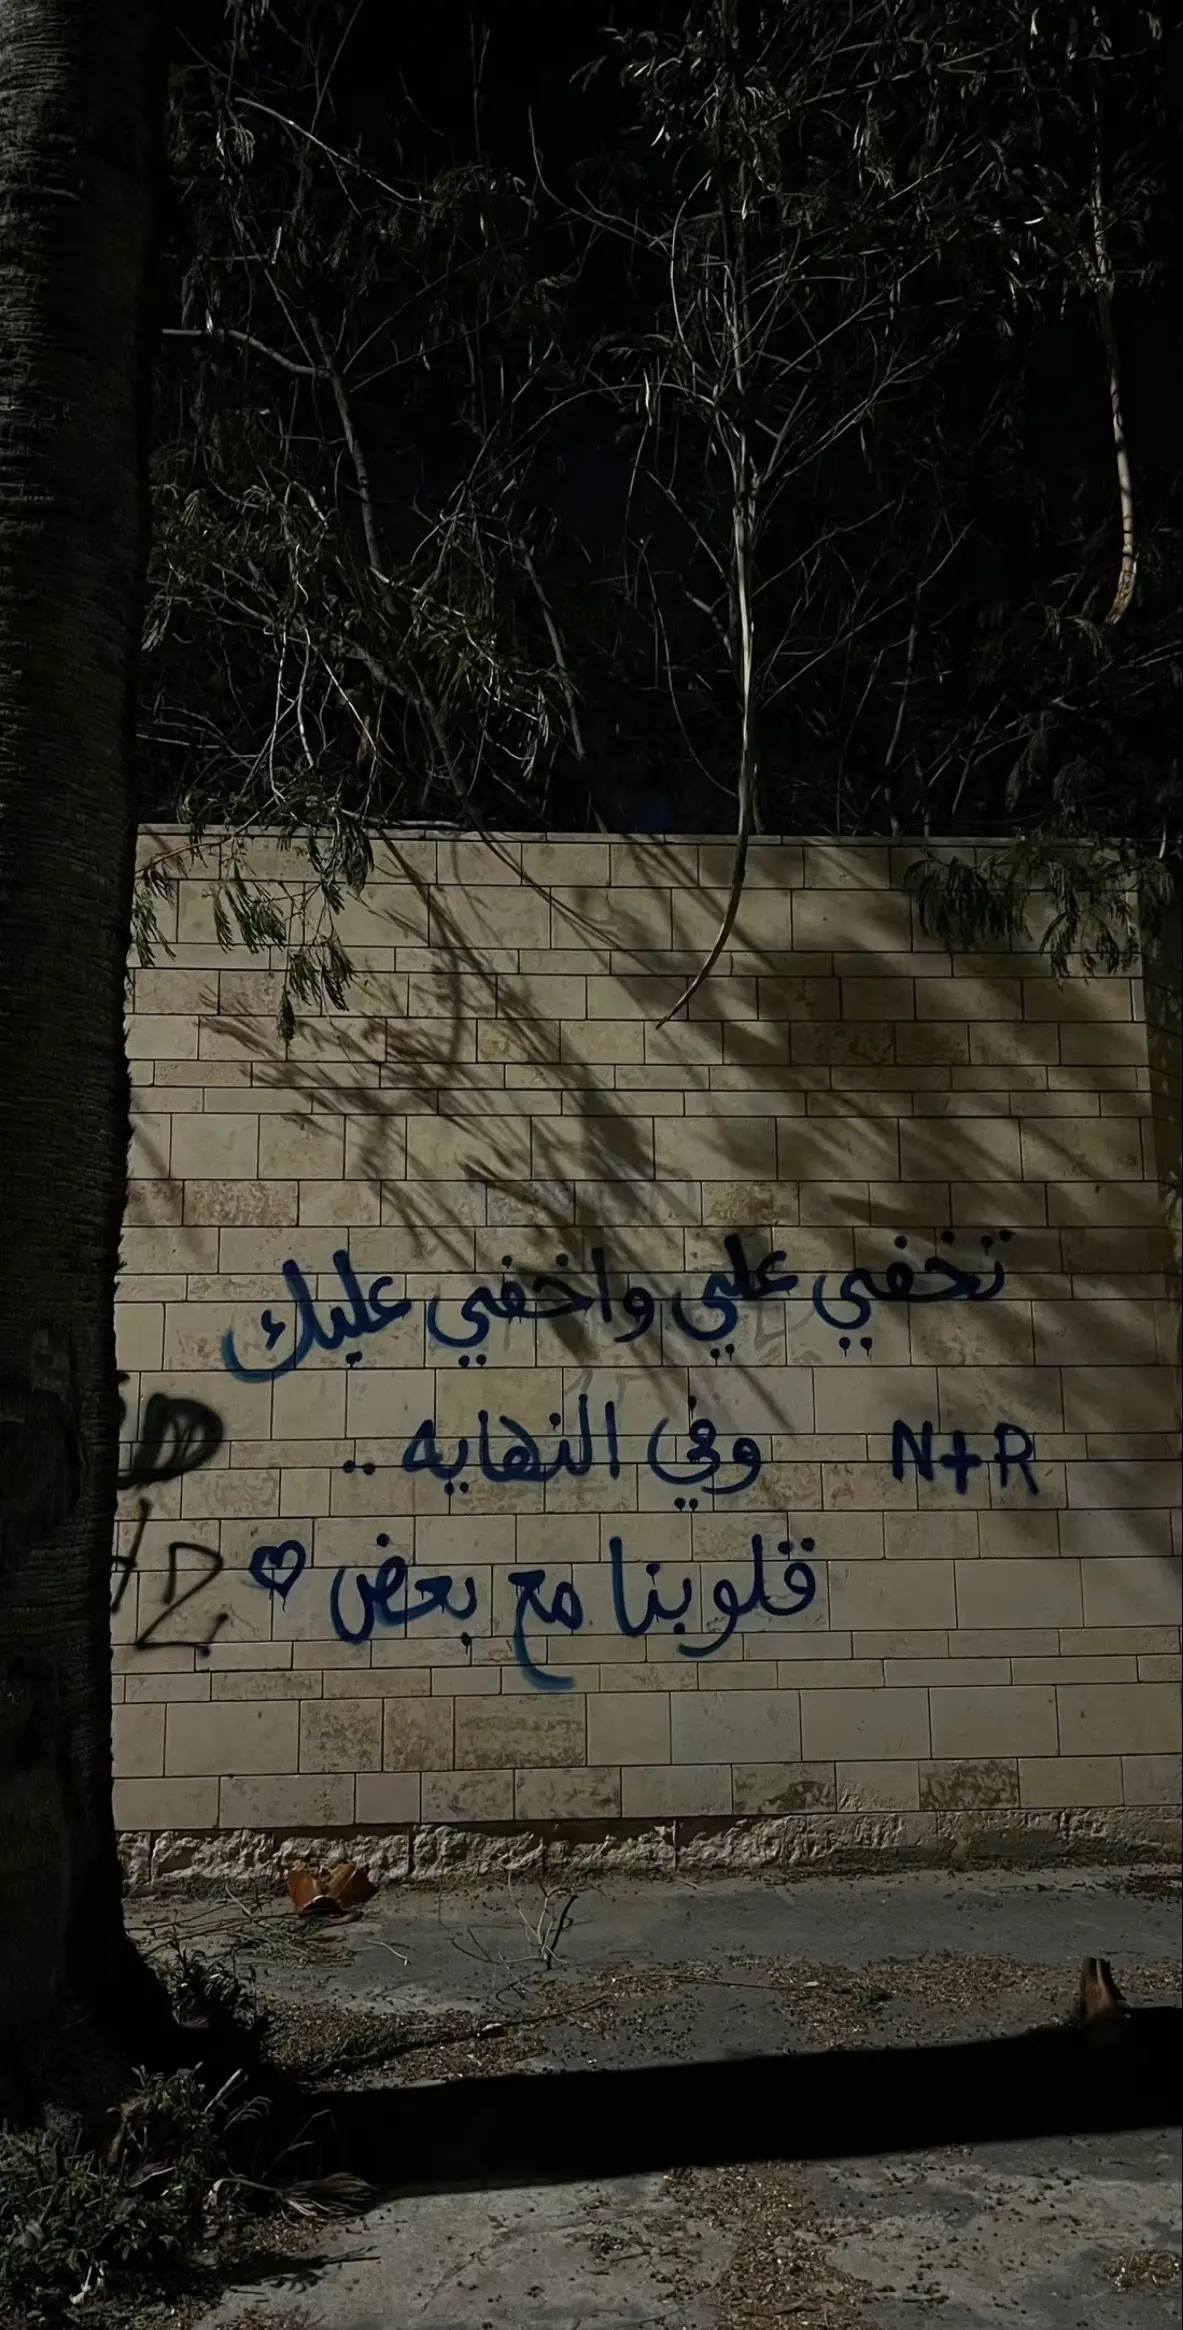 تخفي علي واخفي عليك
وفي النهايه ..
N+R
قلوبنا مع بعض ♡